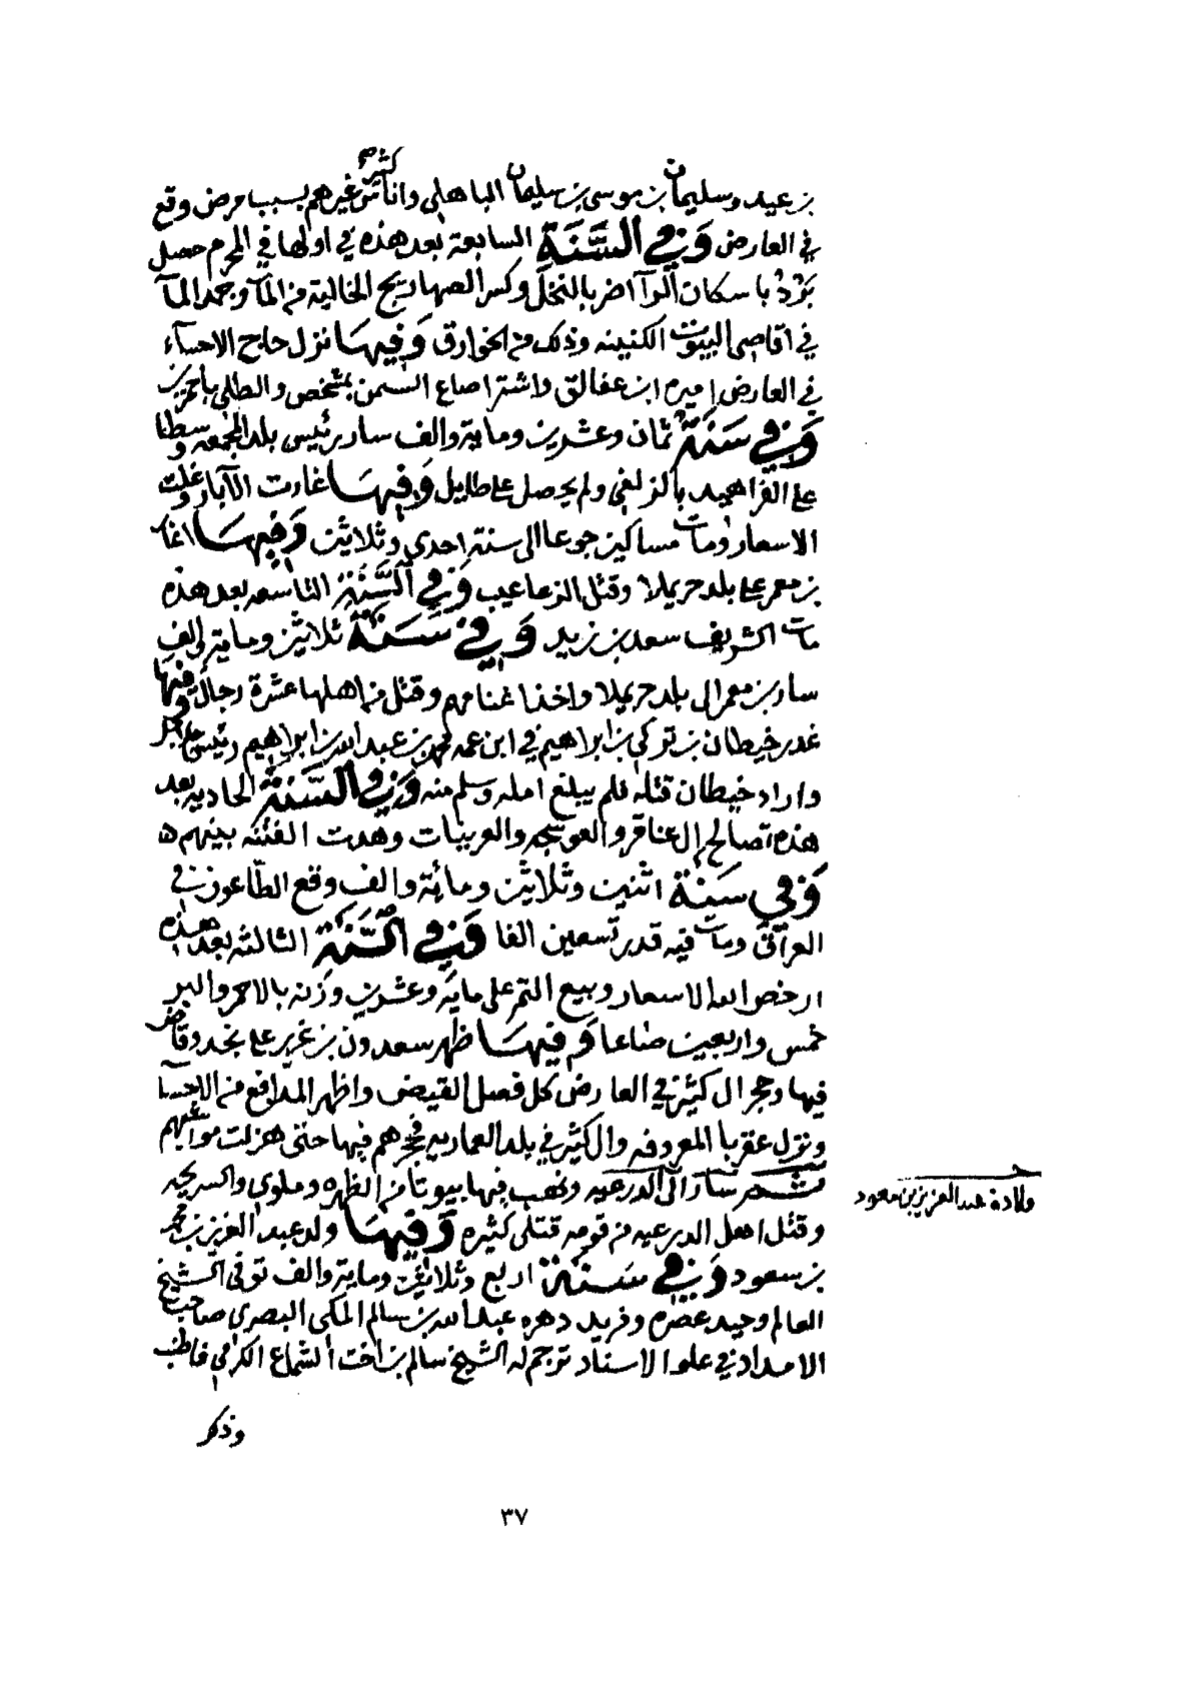 بن عبيد وسليمان بن موسى بن سليمان الباهلي واناس كثير غيرهم بسبب مرض وقع
في العارض وفي السنة السابعة بعد هذه في اولها في المحرم حصل
برد باسكان الرآ اضر بالنخل وكسر الصهاريج الخالية من المآ وجمد المآ
في اقاصي البيوت الكنينه وذلك من الخوارق وفيها نزل حاج الاحسآء
في العارض اميره ابن عفالق واشترا صاع السمن بمشخص والطلي باحمرين
وفي سنة ثمان وعشرين ومايه والف سار رئيس بلد المجمعه وسطا
على الفراهيد بالزلفي ولم يحصل على طايل وفيها غارت الآبار وغلت
الاسعار ومات مساكين جوعا الى سنة احدى وثلاثين وفيها اغار
بن معمر على بلد حريملا وقتل الزعاعيب وفي السنة التاسعه بعد هذه
مات الشريف سعد بن زيد وفي سنة ثلاثين ومايه والف
سار بن معمر الى بلد حريملا واخذ اغنامهم وقتل من اهلها عشرة رجال وفيها
غدر خيطان بن تركي بن ابراهيم في ابن عمه محمد بن عبدالله بن ابراهيم رئيس جلاجل
واراد خيطان قتله فلم يبلغ امله وسلم منه وفي السنة الحاديه بعد
هذه تصالح ال عناقر والعوسجه والعرينات وهدت الفتنه بينهم
وفي سنة اثنين وثلاثين ومائة والف وقع الطاعون في
العراق ومات فيه قدر تسعين الفا وفي السنة الثالثه بعد هذه
ارخص الله الاسعار وبيع التمر على مايه وعشرين وزنه بالاحمر والبر
خمس واربعين صاعا وفيها ظهر سعدون بن غرير على نجد وقاض
فيها وحجر ال كثير في العارض كل فصل القيض واظهر المدافع من الاحسآ
ونزل عقربا المعروفه وال كثير في بلد العماريه فحجرهم فيها حتى هزلت مواشيهم
ثم سار الى الدرعيه ونهب فيها بيوتا من الظهره وملوي والسريحه
وقتل اهل الدرعيه من قومه قتلى كثيره وفيها ولد عبد العزيز بن محمد
بن سعود وفي سنة اربع وثلاثين ومايه والف توفي الشيخ
العالم وحيد عصره وفريد دهره عبدالله بن سالم المكي البصري صاحب
الامداد في علو الاسناد ترجم له الشيخ سالم بن احت الشماع الكرامي فاطنب
وذكر
ولادة عبدالعزيز بن سعود
٣٧